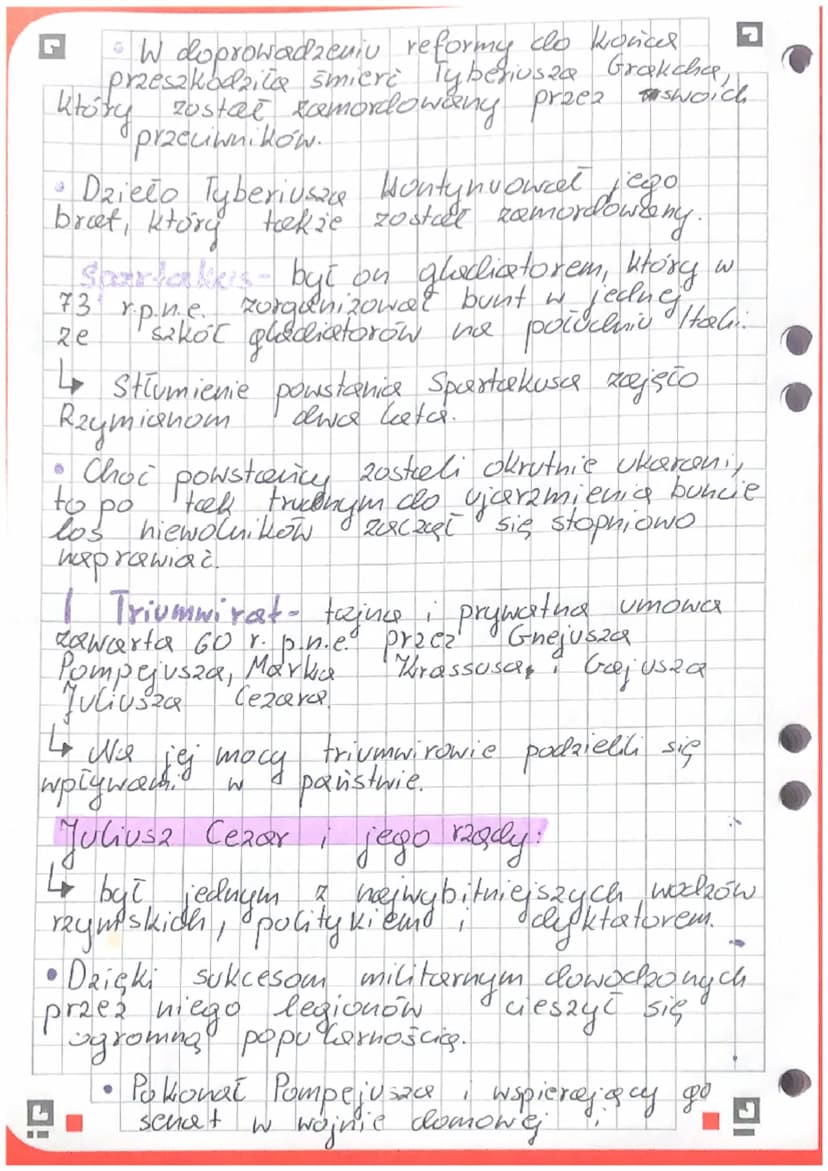 • W doprowadzeniu reformy do końca
przeszkodziła śmierć Tyberiusza Grakcha,
który został zamordowany przez swoich
przeciwników.
• Dzieło Tyberiusza kontynuował jego
brat, który także został zamordowany.
Spartakus - był on gladiatorem, który w
73 r.p.n.e. zorganizował bunt w jednej
ze szkół gladiatorów na południu Itali.
↳ Stłumienie powstania Spartakusa zajęło
Rzymianom dwa lata.
• Choć powstańcy zostali okrutnie ukarani,
to po tak trudnym do ujarzmienia buncie
los niewolników zaczął się stopniowo
naprawiać.
I Triumwirat - tajna i prywatna umowa
zawarta 60 r. p.n.e. przez Gnejusza
Pompejusza, Marka Krassusa, i Gajusza
Juliusza Cezara.
↳ Na jej mocy triumwirowie podzielili się
wpływami w państwie.
Juliusz Cezar i jego rządy:
↳ był jednym z najwybitniejszych wodzów
rzymskich, politykiem i dyktatorem.
• Dzięki sukcesom militarnym dowodzonych
przez niego legionów cieszył się
ogromną popularnością.
• Pokonał Pompejusza i wspierający go
senat w wojnie domowej i